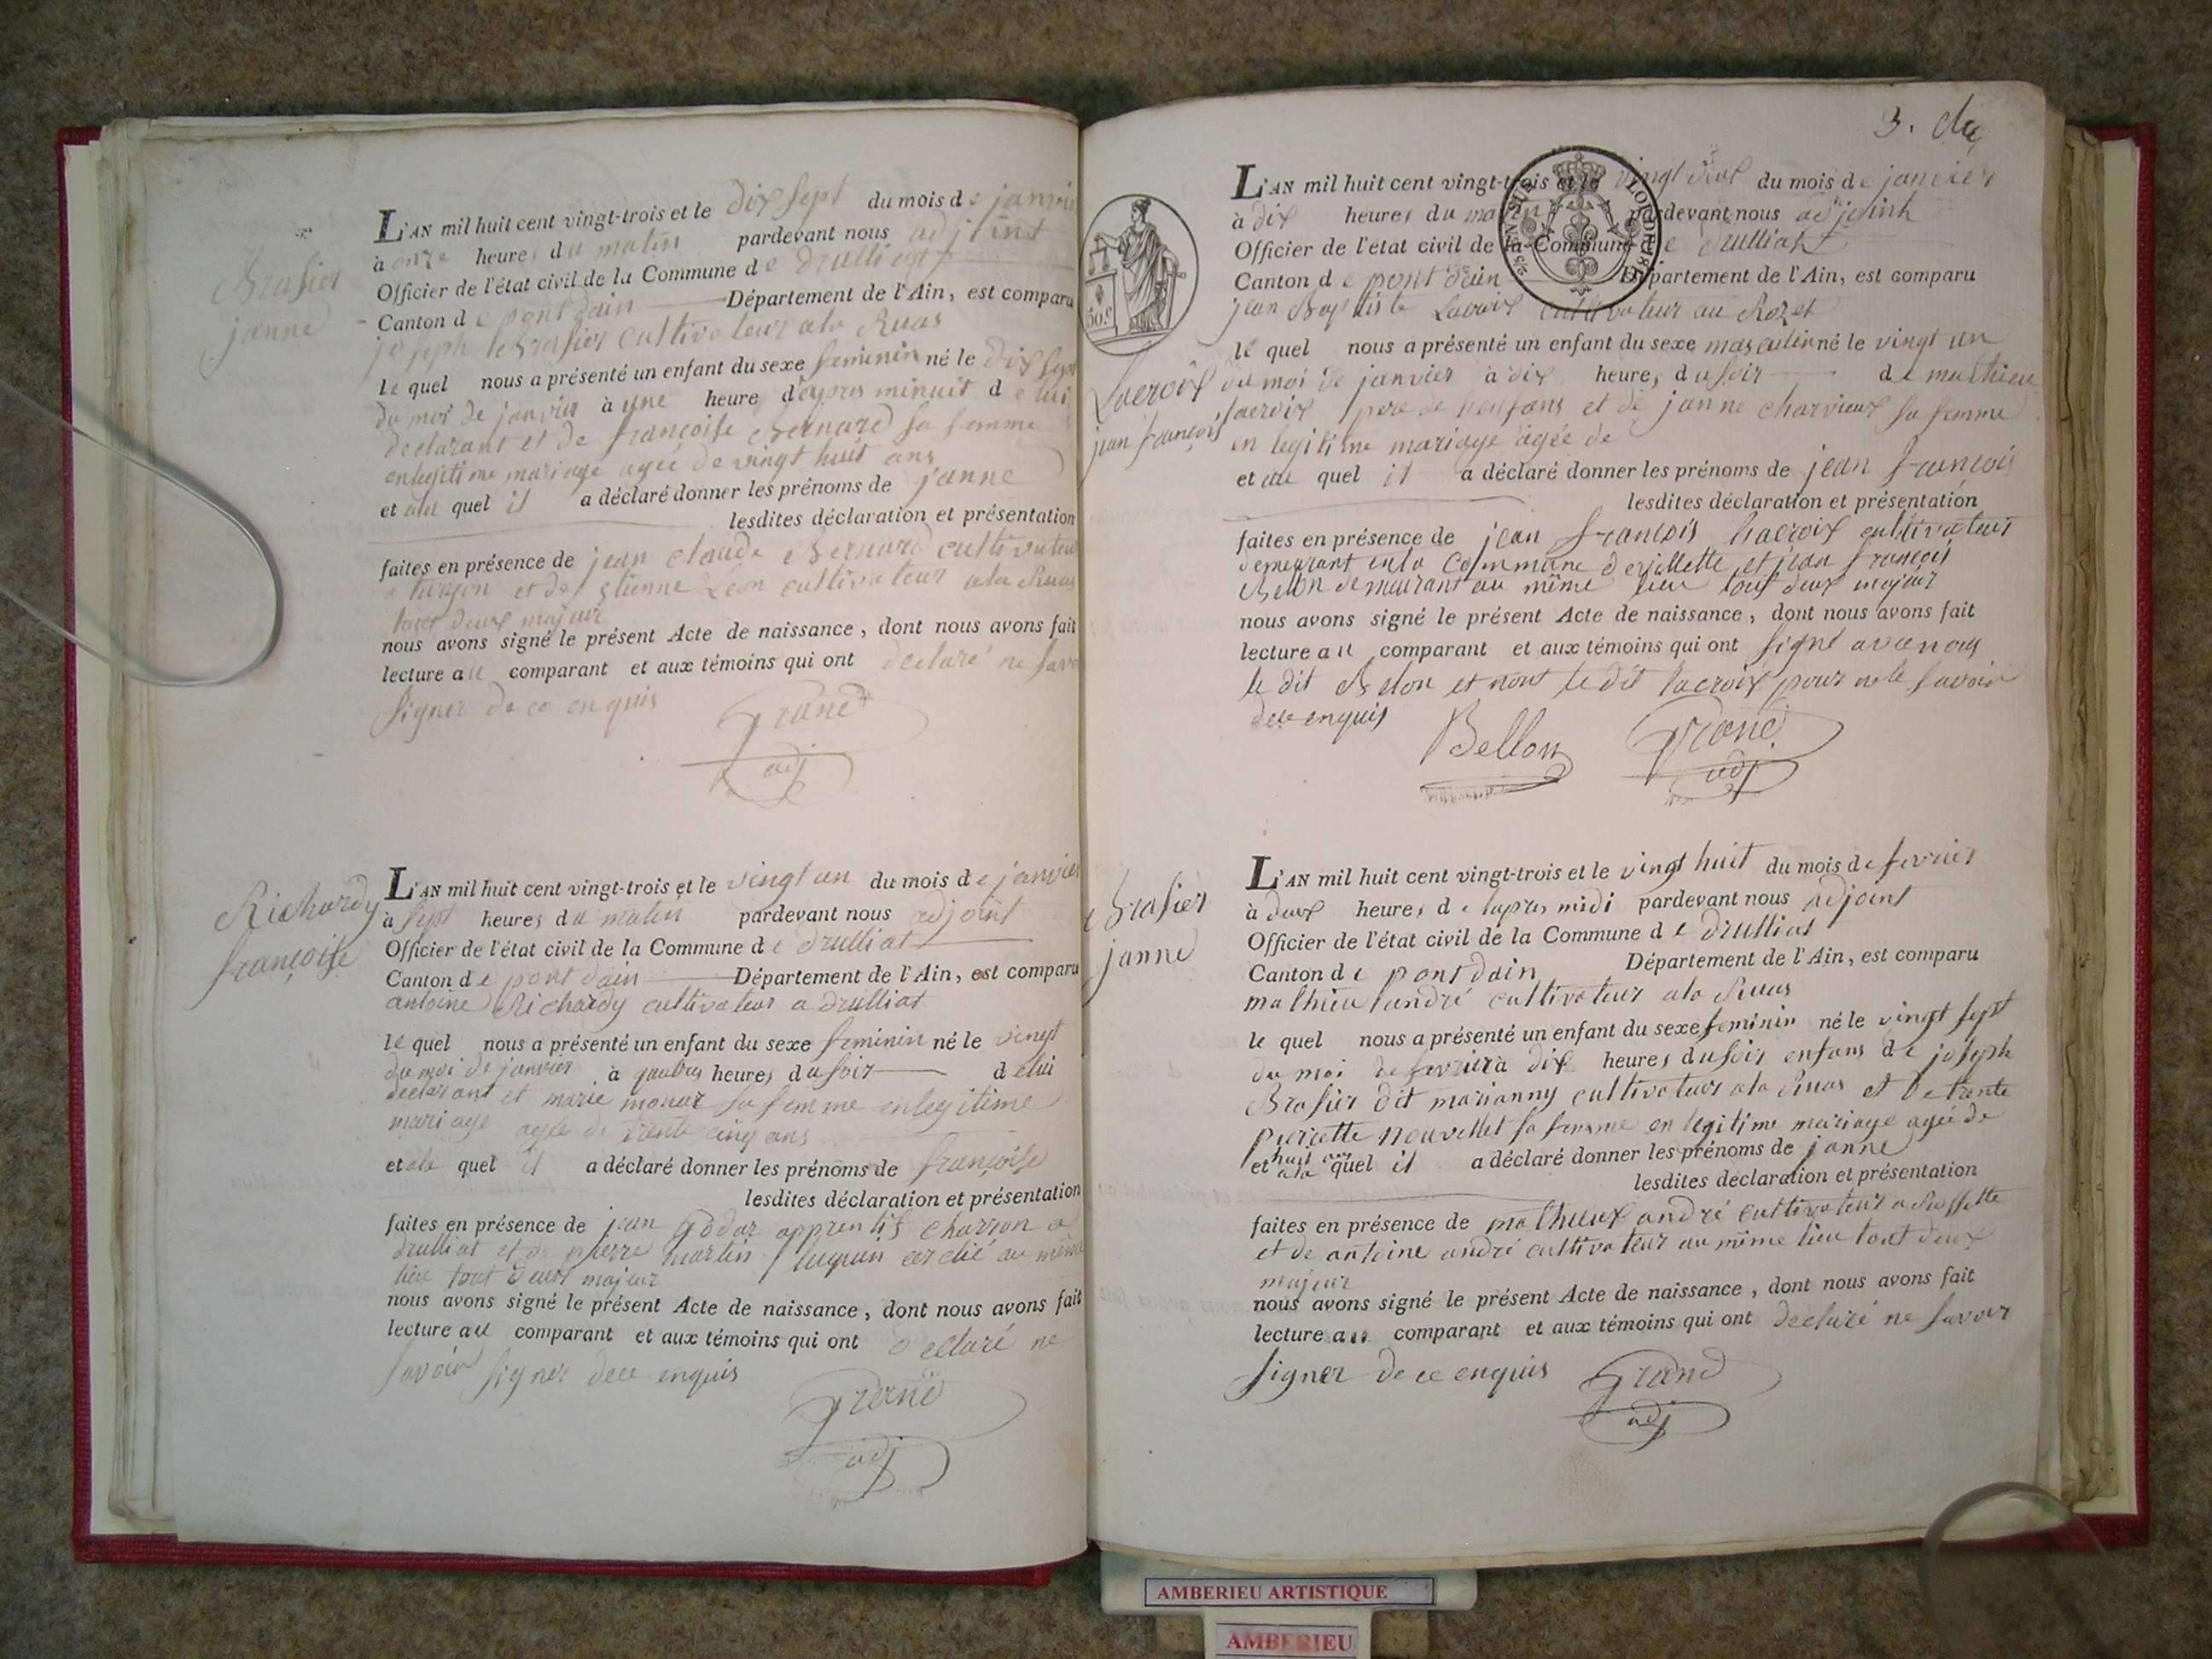 Brasier
janne
L'AN mil huit cent vingt-trois et le dix sept du mois de janvier
à onze heures du matin pardevant nous adjoint
Officier de l'état civil de la Commune de Drulliat
Canton de pont dain Département de l'Ain, est comparu
joseph Brasier cultivateur ala Ruas
le quel nous a présenté un enfant du sexe feminin né le dix sept
du moi de janvier à une heure d'apres minuit de lui
declarant et de françoise Bernard sa femme
enlegitime mariage agée de vingt huit ans
et quel il a déclaré donner les prénoms de janne
lesdites déclaration et présentation
faites en présence de jean claude Bernard cultivateur
a turgon et de etienne Leon cultivateur ala Ruas
tout deux majeur
nous avons signé le présent Acte de naissance, dont nous avons fait
lecture au comparant et aux témoins qui ont declaré ne savoir
signer de ce enquis
Grand
adj
Richardy
françoise
L'AN mil huit cent vingt-trois et le vingt un du mois de janvier
à sept heures du matin pardevant nous adjoint
Officier de l'état civil de la Commune de Drulliat
Canton de pont dain Département de l'Ain, est comparu
antoine Richardy cultivateur a drulliat
le quel nous a présenté un enfant du sexe feminin né le vingt
du moi de janvier à quatres heures du soir de lui
declarant et marie monar sa femme enlegitime
mariage agée de trente cinq ans
et ala quel il a déclaré donner les prénoms de françoise
lesdites déclaration et présentation
faites en présence de jean Godar apprentif charron a
drulliat et de pierre martin au même
lieu tout deux majeur
nous avons signé le présent Acte de naissance, dont nous avons fait
lecture au comparant et aux témoins qui ont declaré ne
savoir signer dece enquis
Grand
adj
3.
50.c
Lacroix
jean françois
L'AN mil huit cent vingt-trois et le vingt deux du mois de janvier
à dix heures du matin pardevant nous adjoint
Officier de l'etat civil de la Commune de Drulliat
Canton de pont dain Département de l'Ain, est comparu
jean Baptiste Lacroix cultivateur au Rozet
le quel nous a présenté un enfant du sexe masculin né le vingt un
du moi de janvier à dix heures du soir de mathieu
Lacroix pere de lenfans et de janne charvieux sa femme
en legitime mariage agée de
et au quel il a déclaré donner les prénoms de jean françois
lesdites déclaration et présentation
faites en présence de jean françois Lacroix cultivateur
demeurant enla Commune de et jean françois
Belon demeurant au même lieu tout deux majeur
nous avons signé le présent Acte de naissance, dont nous avons fait
lecture au comparant et aux témoins qui ont signé avec nous
le dit Belon et nont le dit lacroix pour ne le savoir
dece enquis
Bellon
Grand
adj
Brasier
janne
L'AN mil huit cent vingt-trois et le vingt huit du mois de fevrier
à deux heures de lapres midi pardevant nous adjoint
Officier de l'état civil de la Commune de Drulliat
Canton de pont dain Département de l'Ain, est comparu
mathieu andré cultivateur ala Ruas
le quel nous a présenté un enfant du sexe feminin né le vingt sept
du moi de fevrier à dix heures du soir enfans de joseph
Brasier dit marianny cultivateur ala Ruas et de trente
pierrette Nouvellet sa femme en legitime mariage agée de
huit ans
et ala quel il a déclaré donner les prénoms de janne
lesdites déclaration et présentation
faites en présence de mathieux andré cultivateur a Rossette
et de antoine andré cultivateur au même lieu tout deux
majeur
nous avons signé le présent Acte de naissance, dont nous avons fait
lecture au comparant et aux témoins qui ont declaré ne savoir
signer dece enquis
Grand
adj
AMBERIEU ARTISTIQUE
AMBERIEU